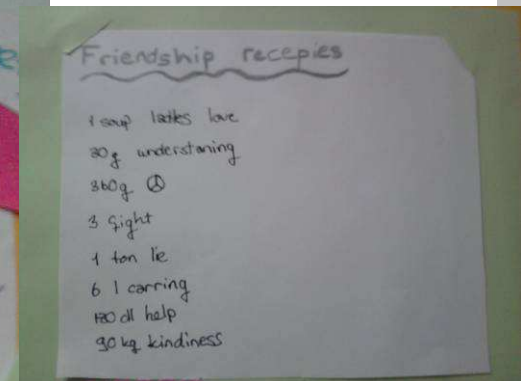 Friendship recepies
1 soup ladles love
30g understaning
360g ☮
3 fight
1 ton lie
6 l carring
120 dl help
90 kg kindiness